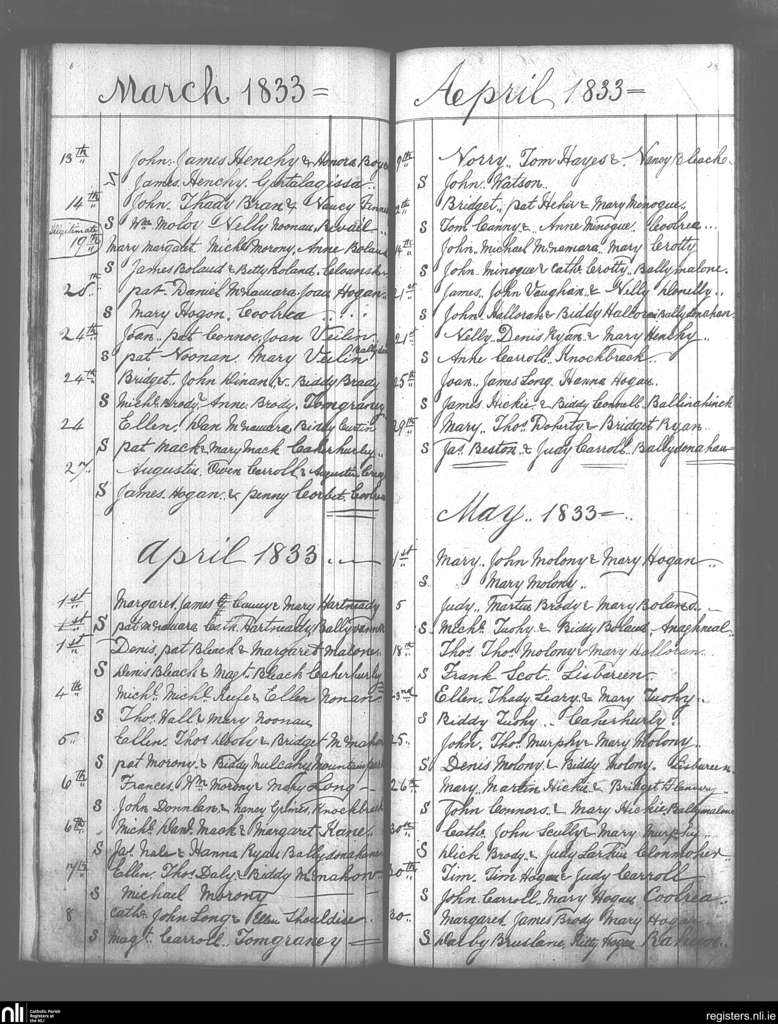 March 1833 =
13th John. James Henchy & Honora
S James Henchy.
14th John. Thady & Nancy
S Wm Nelly Noonan
Illegitimate
19th Mary Margaret Michl Morony, Anne Boland
S James Boland & Betty Boland.
pat. Daniel McNamara Joan Hogan
S Mary Hogan. Coolrea
24th Joan. pat Connor, Joan
S pat Noonan. Mary
24th Bridget. John Dinan & Biddy Brady
S Michl Brody Anne Brody. Tomgraney
24 Ellen. Dan McNamara Biddy Curtin
S pat Mack & Mary Mack Caherhurly
27. Augustin. Owen Carroll &
S James Hogan. & penny Corbet.
April 1833
1st Margaret. James & Mary Hartneady
1st S pat McNamara Cath. Hartneady
1st Denis, pat Bleach & Margaret
S Denis Bleach & Magt. Bleach Caherhurly
4th Michl. Michl. Keefe & Ellen Nonan
S Thos. Wall & Mary Noonan
5. Ellen. Thos & Bridget McMahon
S pat Morony & Biddy Mulcahy
6th Frances. Wm Morony & Mary Long
S John & Nancy Grimes.
6th Michl. Danl. Mack & Margaret Kane
S Jas. & Hanna Ryan Ballydonahane
7th Ellen. Thos Daly & Biddy McMahon
S Michael Morony
8 Cath. John Long & Ellen
S Magt. Carroll. Tomgraney
Aepril 1833 =
9th Norry. Tom Hayes & Nancy
S John Watson.
Bridget. pat Hehir & Mary Minogue
S Tom Canny & Anne Minogue. Coolrea
John. Michael McNamara. Mary Crotty
S John Minogue & Cath. Crotty. Ballymalone.
21st James. John Vaughan & Nelly
S John Halloran & Biddy Halloran Ballydonahan
21st Nelly. Denis Ryan & Mary Henchy
S Anne Carroll. Knockbrack
25th Joan. James Long. Hanna Hogan.
S James Hickie & Biddy Connell. Ballinahinch
29th Mary. Thos. Doherty & Bridget Ryan
S Jas. Beston. & Judy Carroll. Ballydonahan
May. 1833 =
1st Mary. John Molony & Mary Hogan
S Mary Molony
5 Judy. Martin Brody & Mary Boland
S Michl. Tuohy & Biddy Boland.
18th Thos. Thos Molony & Mary Halloran
S Frank Scot. Lisbareen
Ellen. Thady Leary & Mary Tuohy
S Biddy Tuohy. Caherhurly
25. John. Thos. Murphy & Mary Molony
S Denis Molony & Biddy Molony. Lisbareen
26th Mary. Martin Hickie & Bridget
S John Connors & Mary Hickie Ballymalone
30th Cath. John Scully & Mary Murphy
S Mich Brody & Judy Larkin
30th Tim. Tim Hogan & Judy Carroll
S John Carroll. Mary Hogan Coolrea
30. Margaret James Brody Mary Hogan
S Darby Kitty Hogan
nli
Catholic Parish
Registers at
the NLI
registers.nli.ie